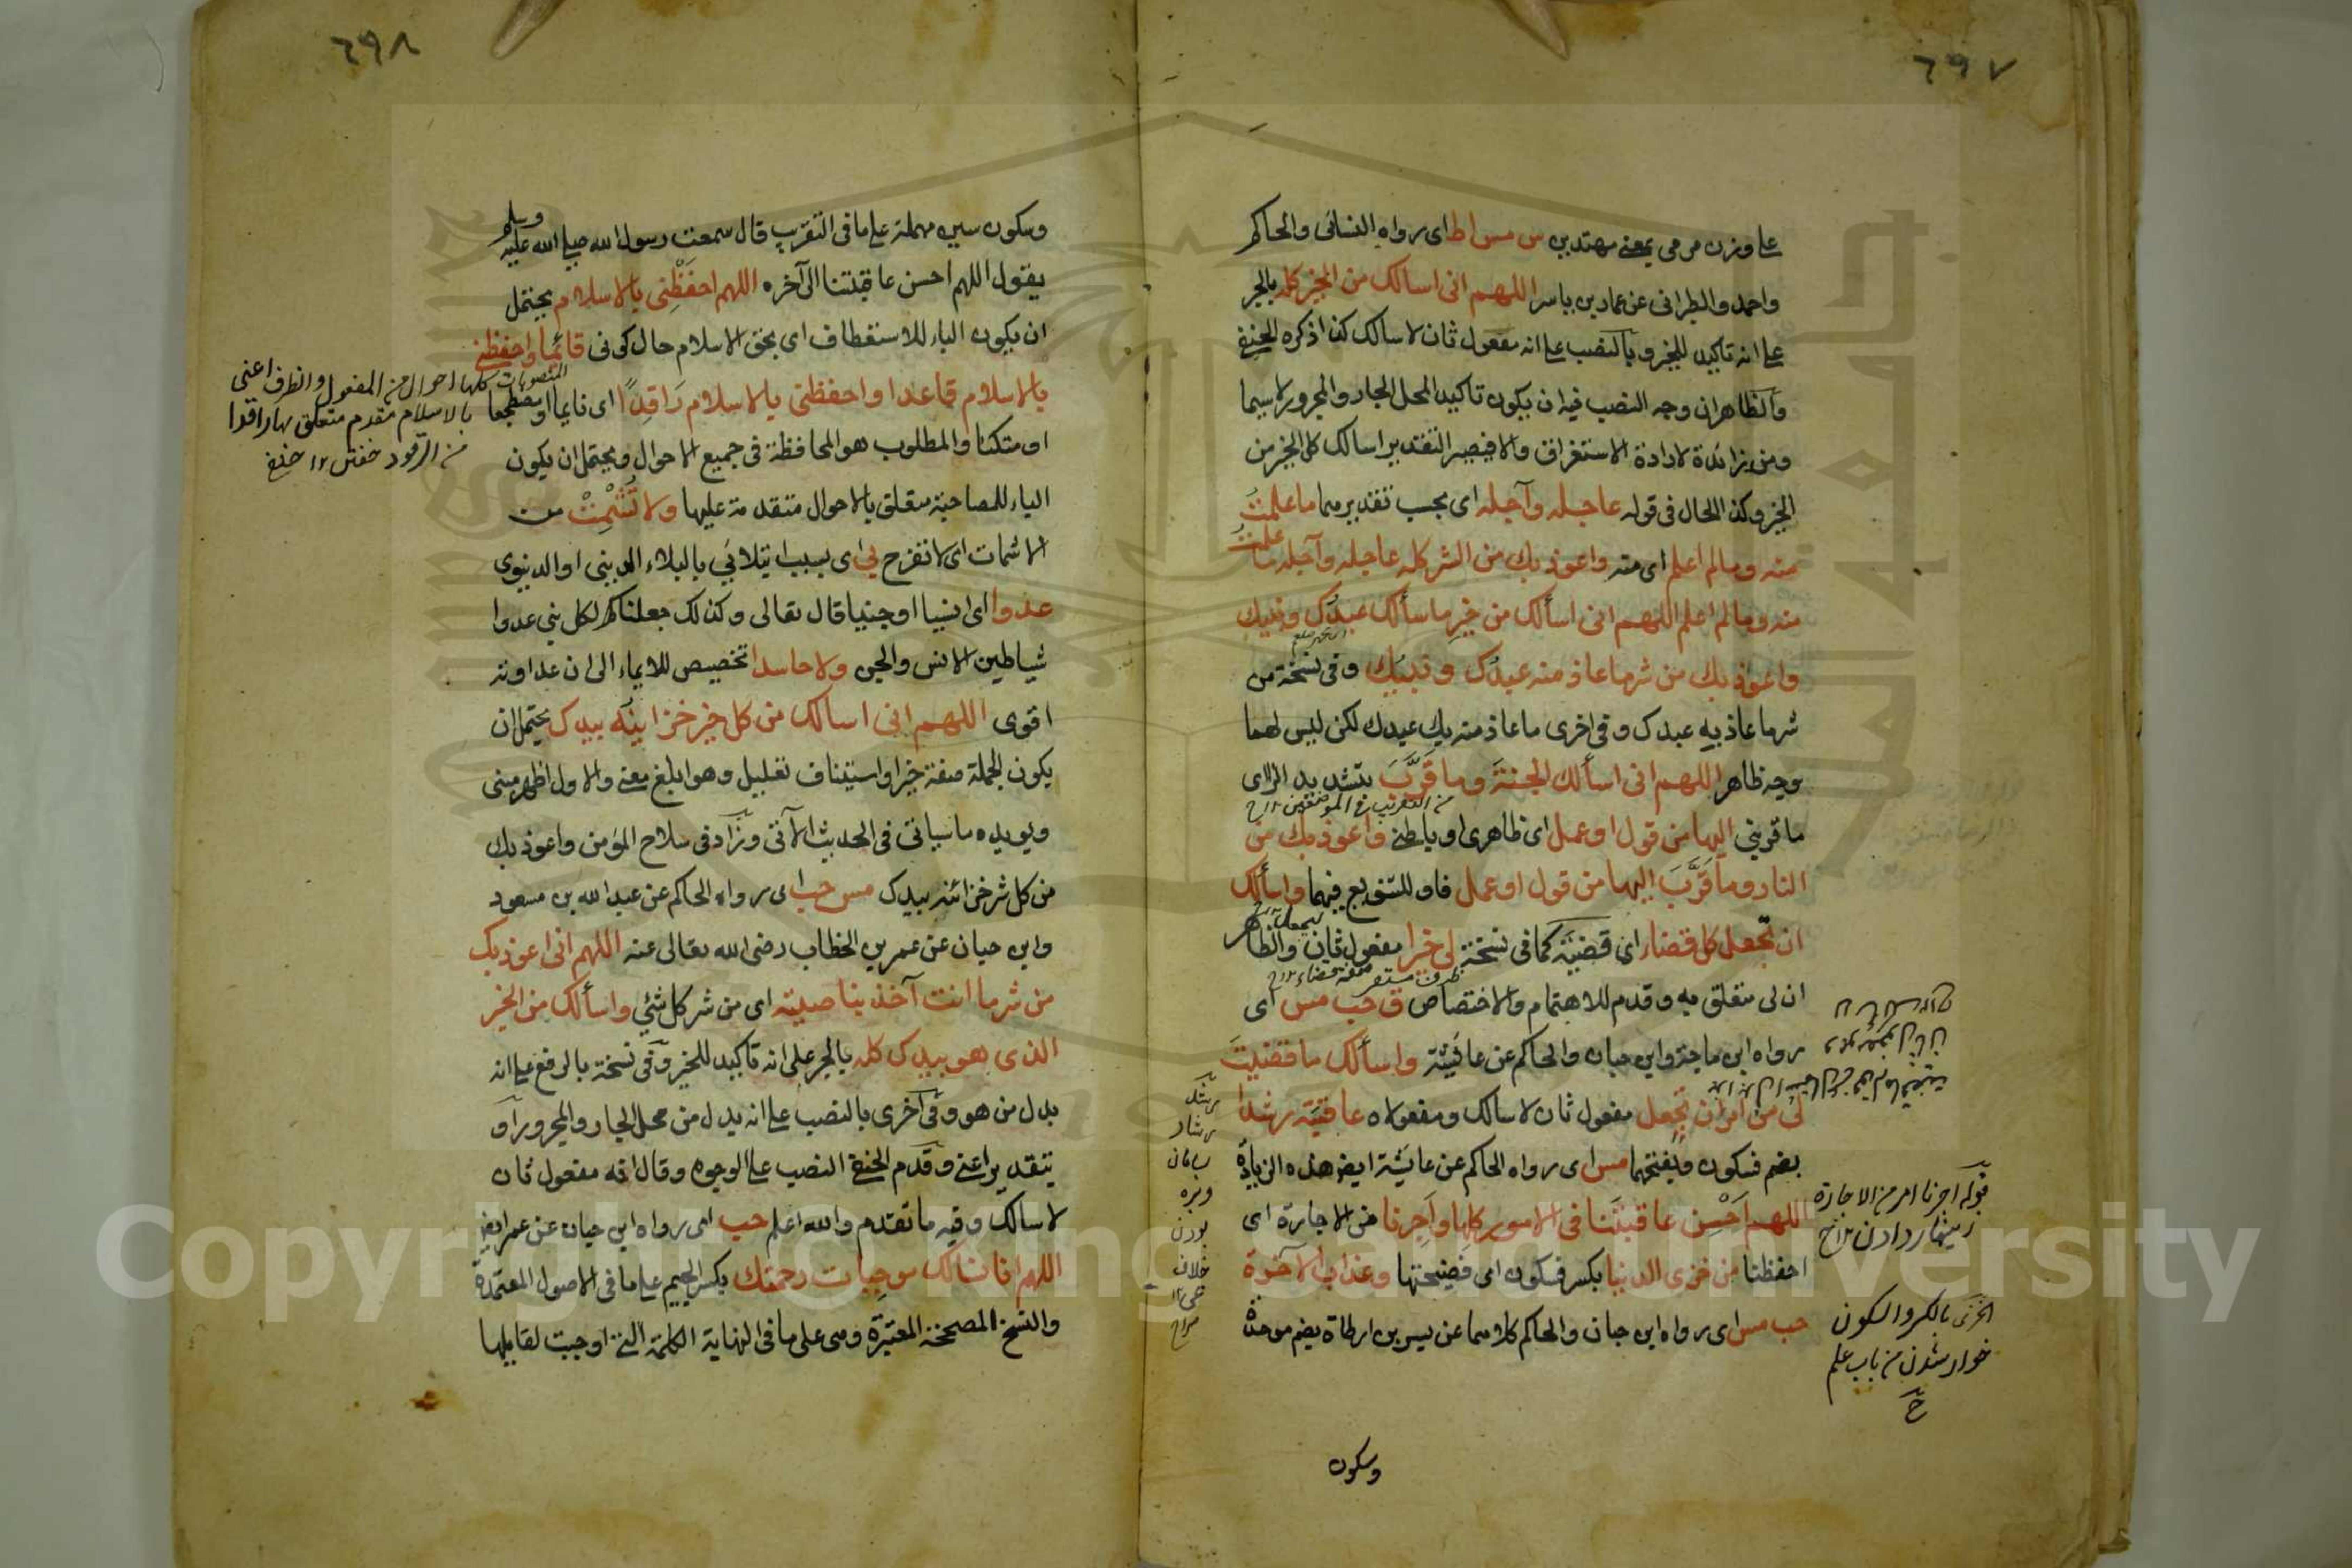 ٦٩٧
على وزن مرمي بمعنى مهتدين س مس اط اى رواه النسائى والحاكم
واحمد والطبرانى عن عمار بن ياسر اللهم انى اسالك من الخير كله بالجر
على انه تاكيد للخير وبالنصب على انه مفعول ثان لاسالك كذا ذكره الحنفى
والظاهر ان وجه النصب فيه ان يكون تاكيد المحل الجار والمجرور لاسيما
ومن زائدة لارادة الاستغراق والا فيصير التقدير اسالك كل الخير من
الخير وكذا الحال فى قوله عاجله وآجله اى بحسب تقديرهما ما علمت
منه وما لم اعلم اى منه واعوذ بك من الشر كله عاجله وآجله ما علمت
منه وما لم اعلم اللهم انى اسألك من خير ما سألك عبدك ونبيك
واعوذ بك من شر ما عاذ منه عبدك ونبيك وفى نسخة من
شر ما عاذ به عبدك وفى اخرى ما عاذ منه بك عبدك لكن ليس لهما
وجه ظاهر اللهم انى اسألك الجنة وما قرَّبَ بتشديد الراى
ما قربنى اليها من قول او عمل اى ظاهرى او باطنى واعوذ بك من
النار وما قَرَّبَ اليها من قول او عمل فاو للتنويع فيهما واسألك
ان تجعل كل قضاء اى قضيته كما فى نسخة لى خيرا مفعول ثان لتجعل والظاهر
ان لى متعلق به وقدم للاهتمام والاختصاص ق حب مس اى
رواه ابن ماجة وابن حبان والحاكم عن عائشة واسألك ما قضيتَ
لى من امر ان تجعل مفعول ثان لاسالك ومفعولاه عاقبته رشدا
بضم فسكون وبفتحهما مس اى رواه الحاكم عن عايشة ايضا هذه الزيادة
اللهم اَحْسِن عاقبتَنا فى الامور كلها وأَجِرنا من الاجارة اى
احفظنا من خزى الدنيا بكسر فسكون اى فضيحتها وعذاب الآخرة
حب مس اى رواه ابن حبان والحاكم كلاهما عن بسر بن ارطاة بضم موحدة
وسكون
قوله اجرنا امر من الاجارة
زينهار دادن
الخزى بالكسر والسكون
خوار شدن من باب علم
٦٩٨
وسكون سين مهملة على ما فى التقريب قال سمعت رسول الله صلى الله عليه وسلم
يقول اللهم احسن عاقبتنا الى آخره اللهم احفَظْنِى بالاسلام يحتمل
ان يكون الباء للاستعطاف اى بحق الاسلام حال كونى قائما واحفظنى
بالاسلام قاعدا واحفظنى بالاسلام رَاقِدًا اى نايما او مضطجعا
او متكئا والمطلوب هو المحافظة فى جميع الاحوال ويحتمل ان يكون
الباء للمصاحبة متعلق بالاحوال متقدمة عليها ولا تُشْمِتْ من
الاشمات اى لا تفرح بي اى بسبب ابتلائي بالبلاء الدينى او الدنيوى
عدوا اى انسيا او جنيا قال تعالى وكذلك جعلنا لكل نبي عدوا
شياطين الانس والجن ولا حاسدا تخصيص للايماء الى ان عداوته
اقوى اللهم انى اسالك من كل خير خزاينه بيدك يحتمل ان
يكون الجملة صفة خير او استيناف تعليل وهو ابلغ معنى والاول اظهر مبنى
ويويده ما سياتى فى الحديث الآتى وزاد فى سلاح المؤمن واعوذ بك
من كل شر خزائنه بيدك مس حب اى رواه الحاكم عن عبد الله بن مسعود
وابن حبان عن عمر بن الخطاب رضى الله تعالى عنه اللهم انى اعوذ بك
من شر ما انت آخذ بناصيته اى من شر كل شئ واسألك من الخير
الذى هو بيدك كله بالجر على انه تاكيد للخير وفى نسخة بالرفع على انه
بدل من هو وفى اخرى بالنصب على انه بدل من محل الجار والمجرور او
بتقدير اعنى وقدم الحنفى النصب على الوجوه وقال انه مفعول ثان
لاسالك وفيه ما تقدم والله اعلم حب اى رواه ابن حبان عن عمر ايضا
اللهم انا نسالك موجِبات رحمتك بكسر الجيم على ما فى الاصول المعتمدة
والنسخ المصححة المعتبرة وهى على ما فى النهاية الكلمة التى اوجبت لقايلها
المنصوبات كلها احوال من المفعول والظرف اعنى
بالاسلام مقدم متعلق بها راقدا
من الرقود خفتن ١٢ حنفى